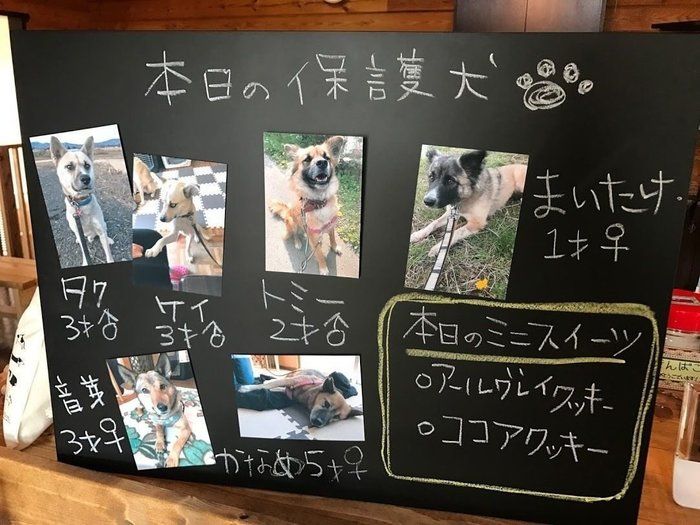 本日の保護犬
タク
3才♂
ケイ
3才♂
トミー
2才♂
まいたけ
1才♀
音芽
3才♀
かなめ5才♀
本日のミニスイーツ
○アールグレイクッキー
○ココアクッキー